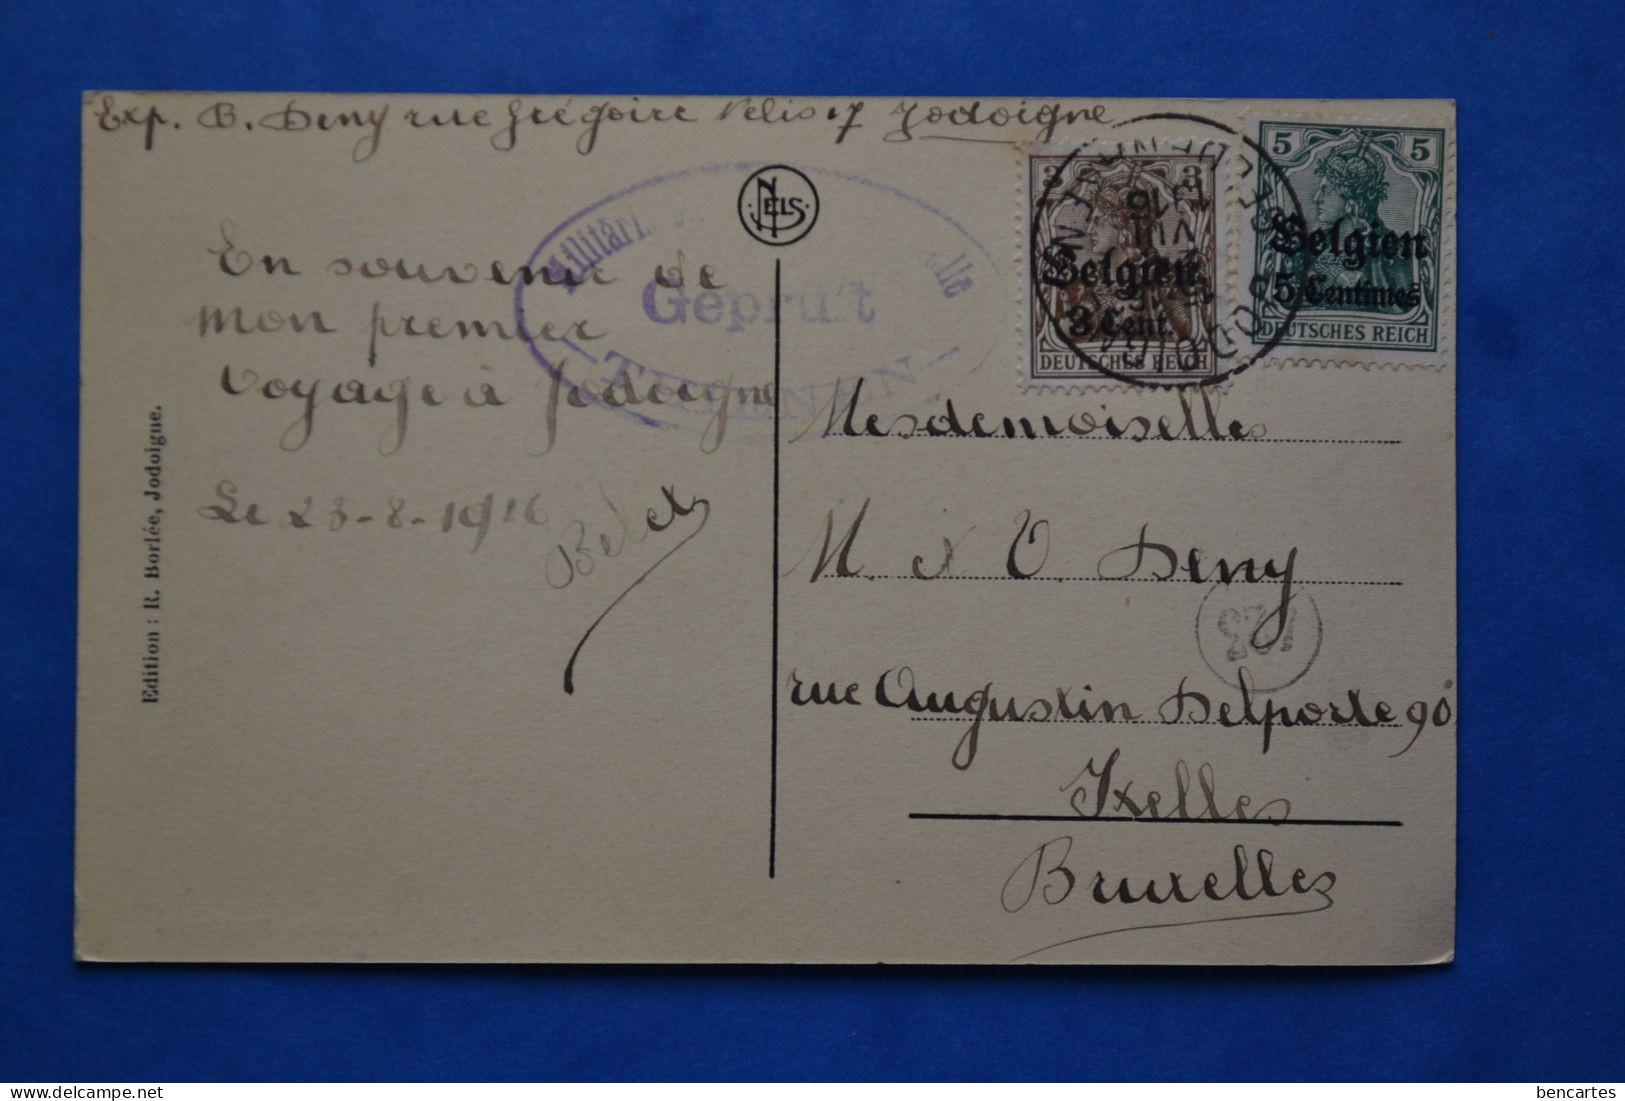 Exp. B. Deny rue Grégoire Nélis 17 Jodoigne
NELS
Geprüft
En souvenir de
mon premier
voyage à Jodoigne
Le 23-8-1916
Edition : R. Borlée, Jodoigne.
3 3
Belgien
3 Cent.
DEUTSCHES REICH
5 5
Belgien
5 Centimes
DEUTSCHES REICH
Mesdemoiselles
M. et V. Deny
rue Augustin Delporte 90
Ixelles
Bruxelles
bencartes